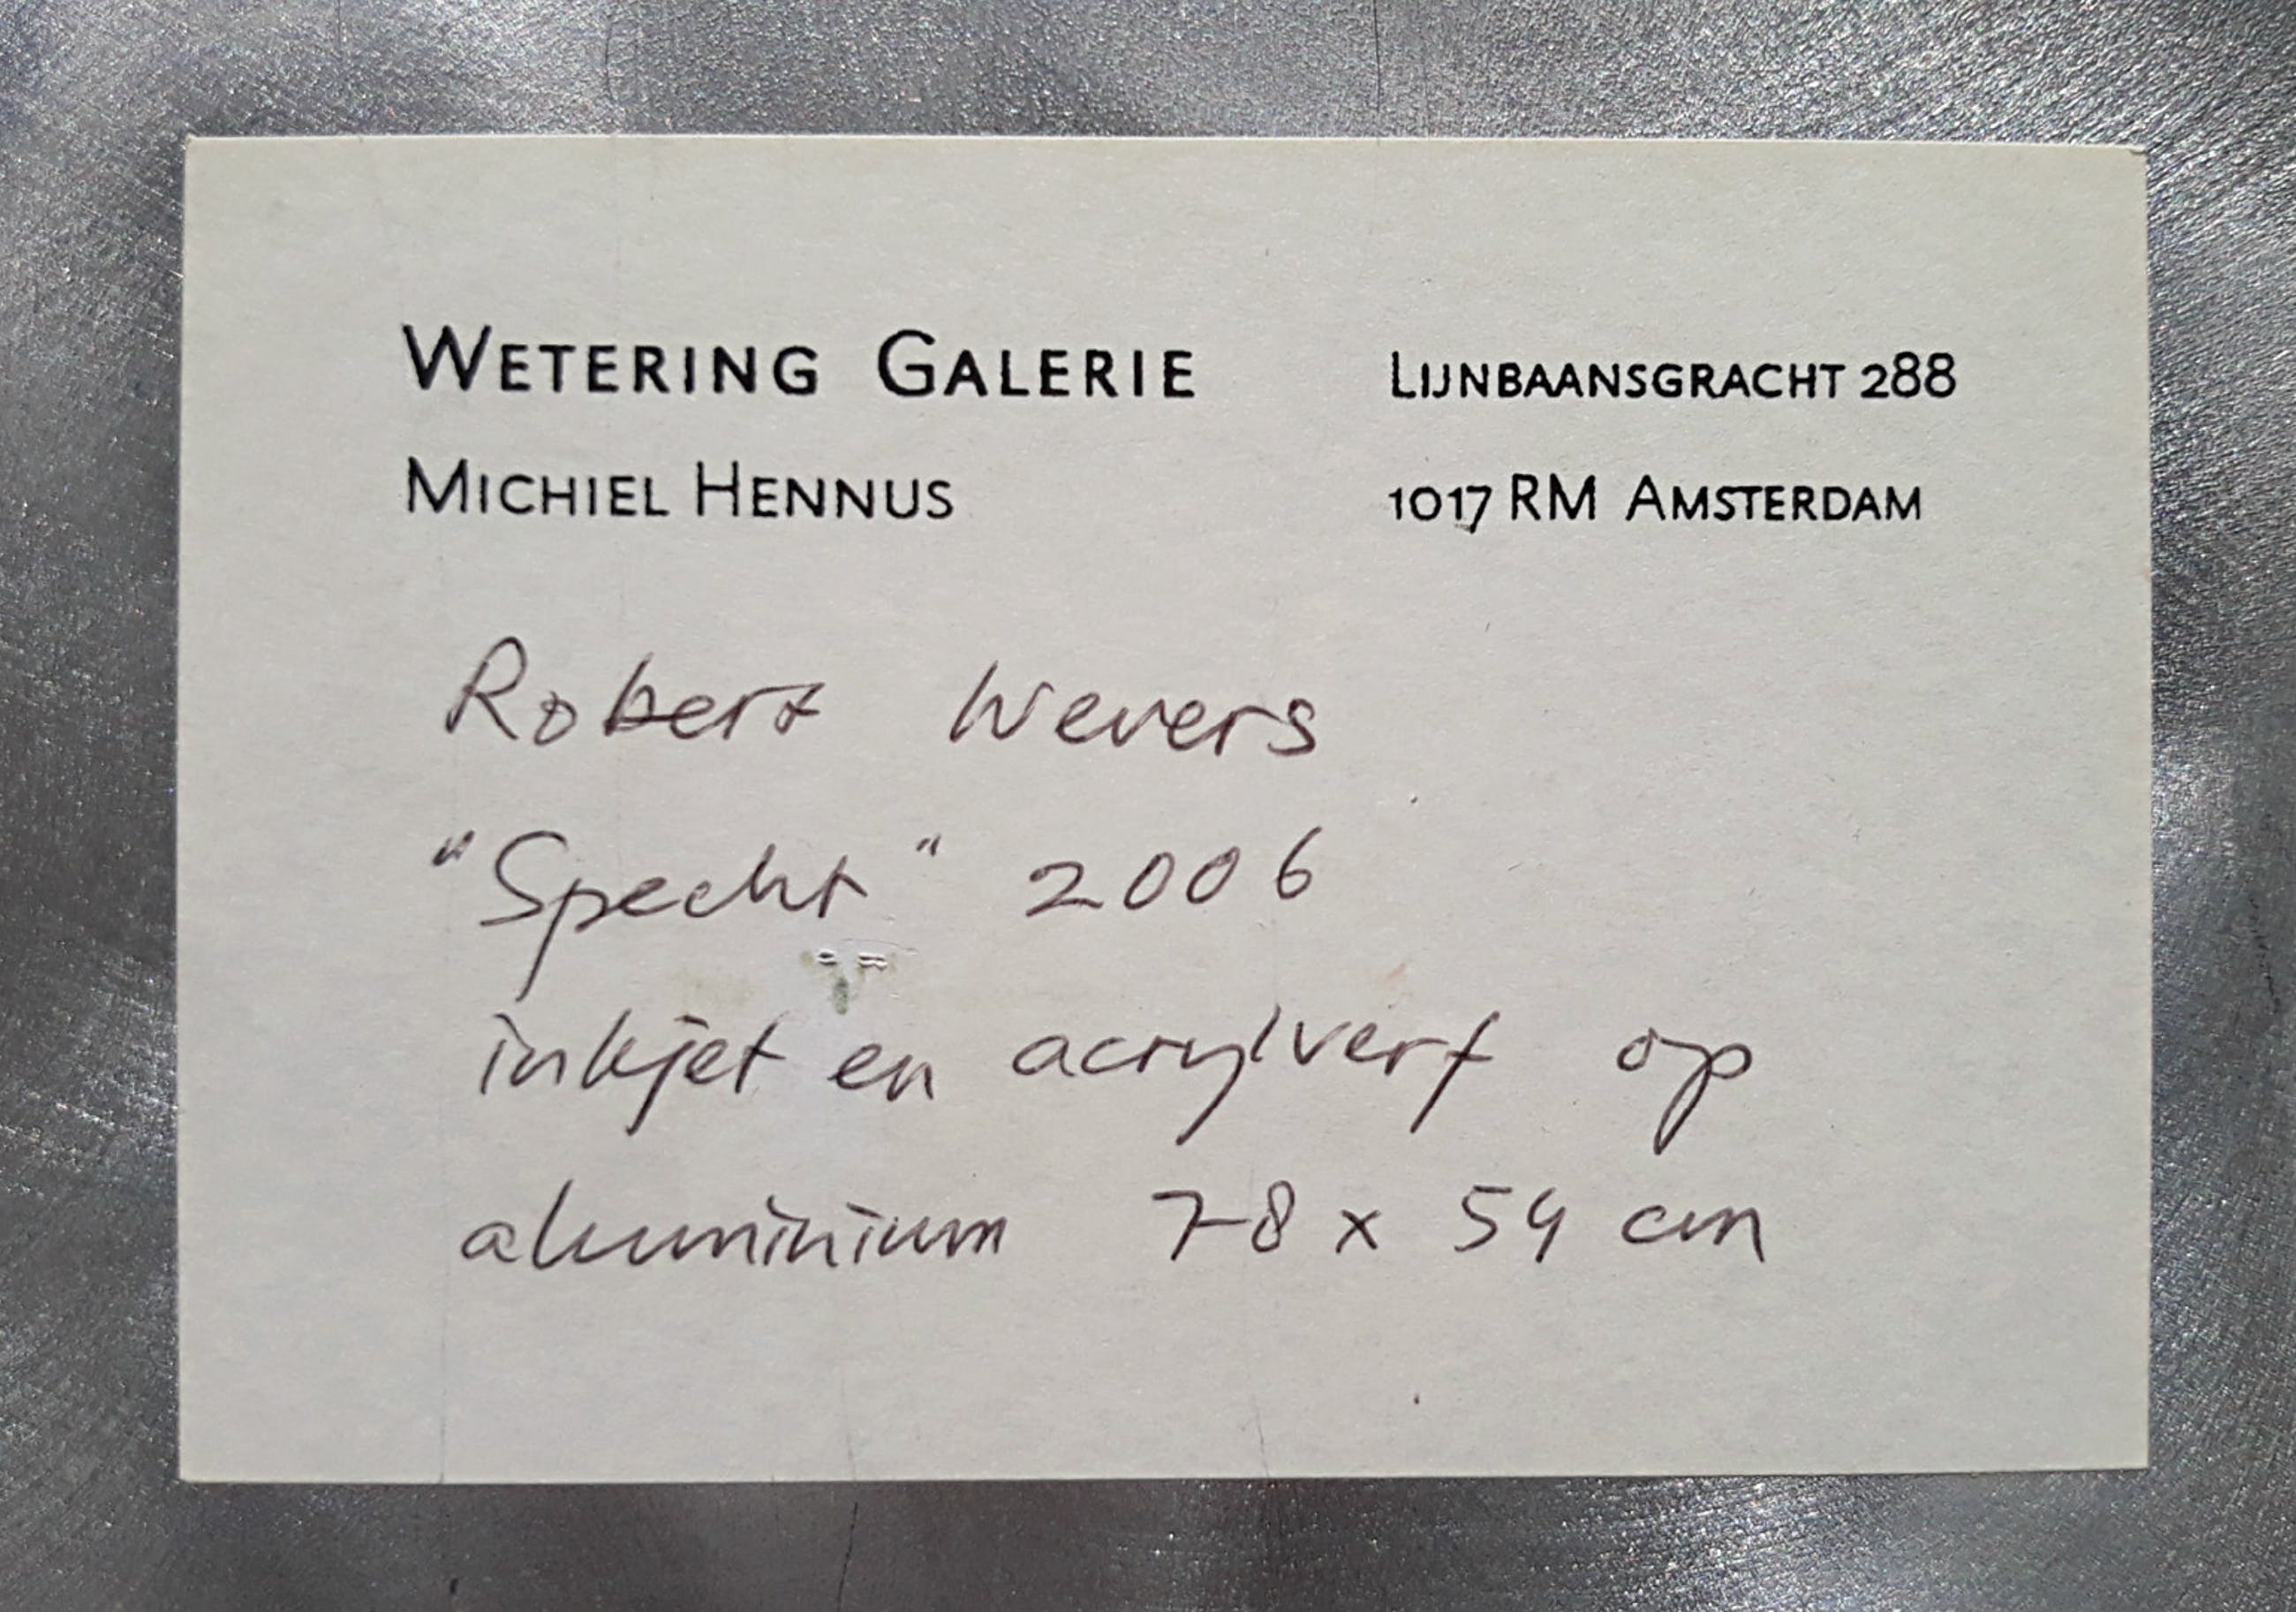 WETERING GALERIE LIJNBAANSGRACHT 288
MICHIEL HENNUS 1017 RM AMSTERDAM
Robert Wevers
"Specht" 2006
inkjet en acrylverf op
aluminium 78 x 54 cm